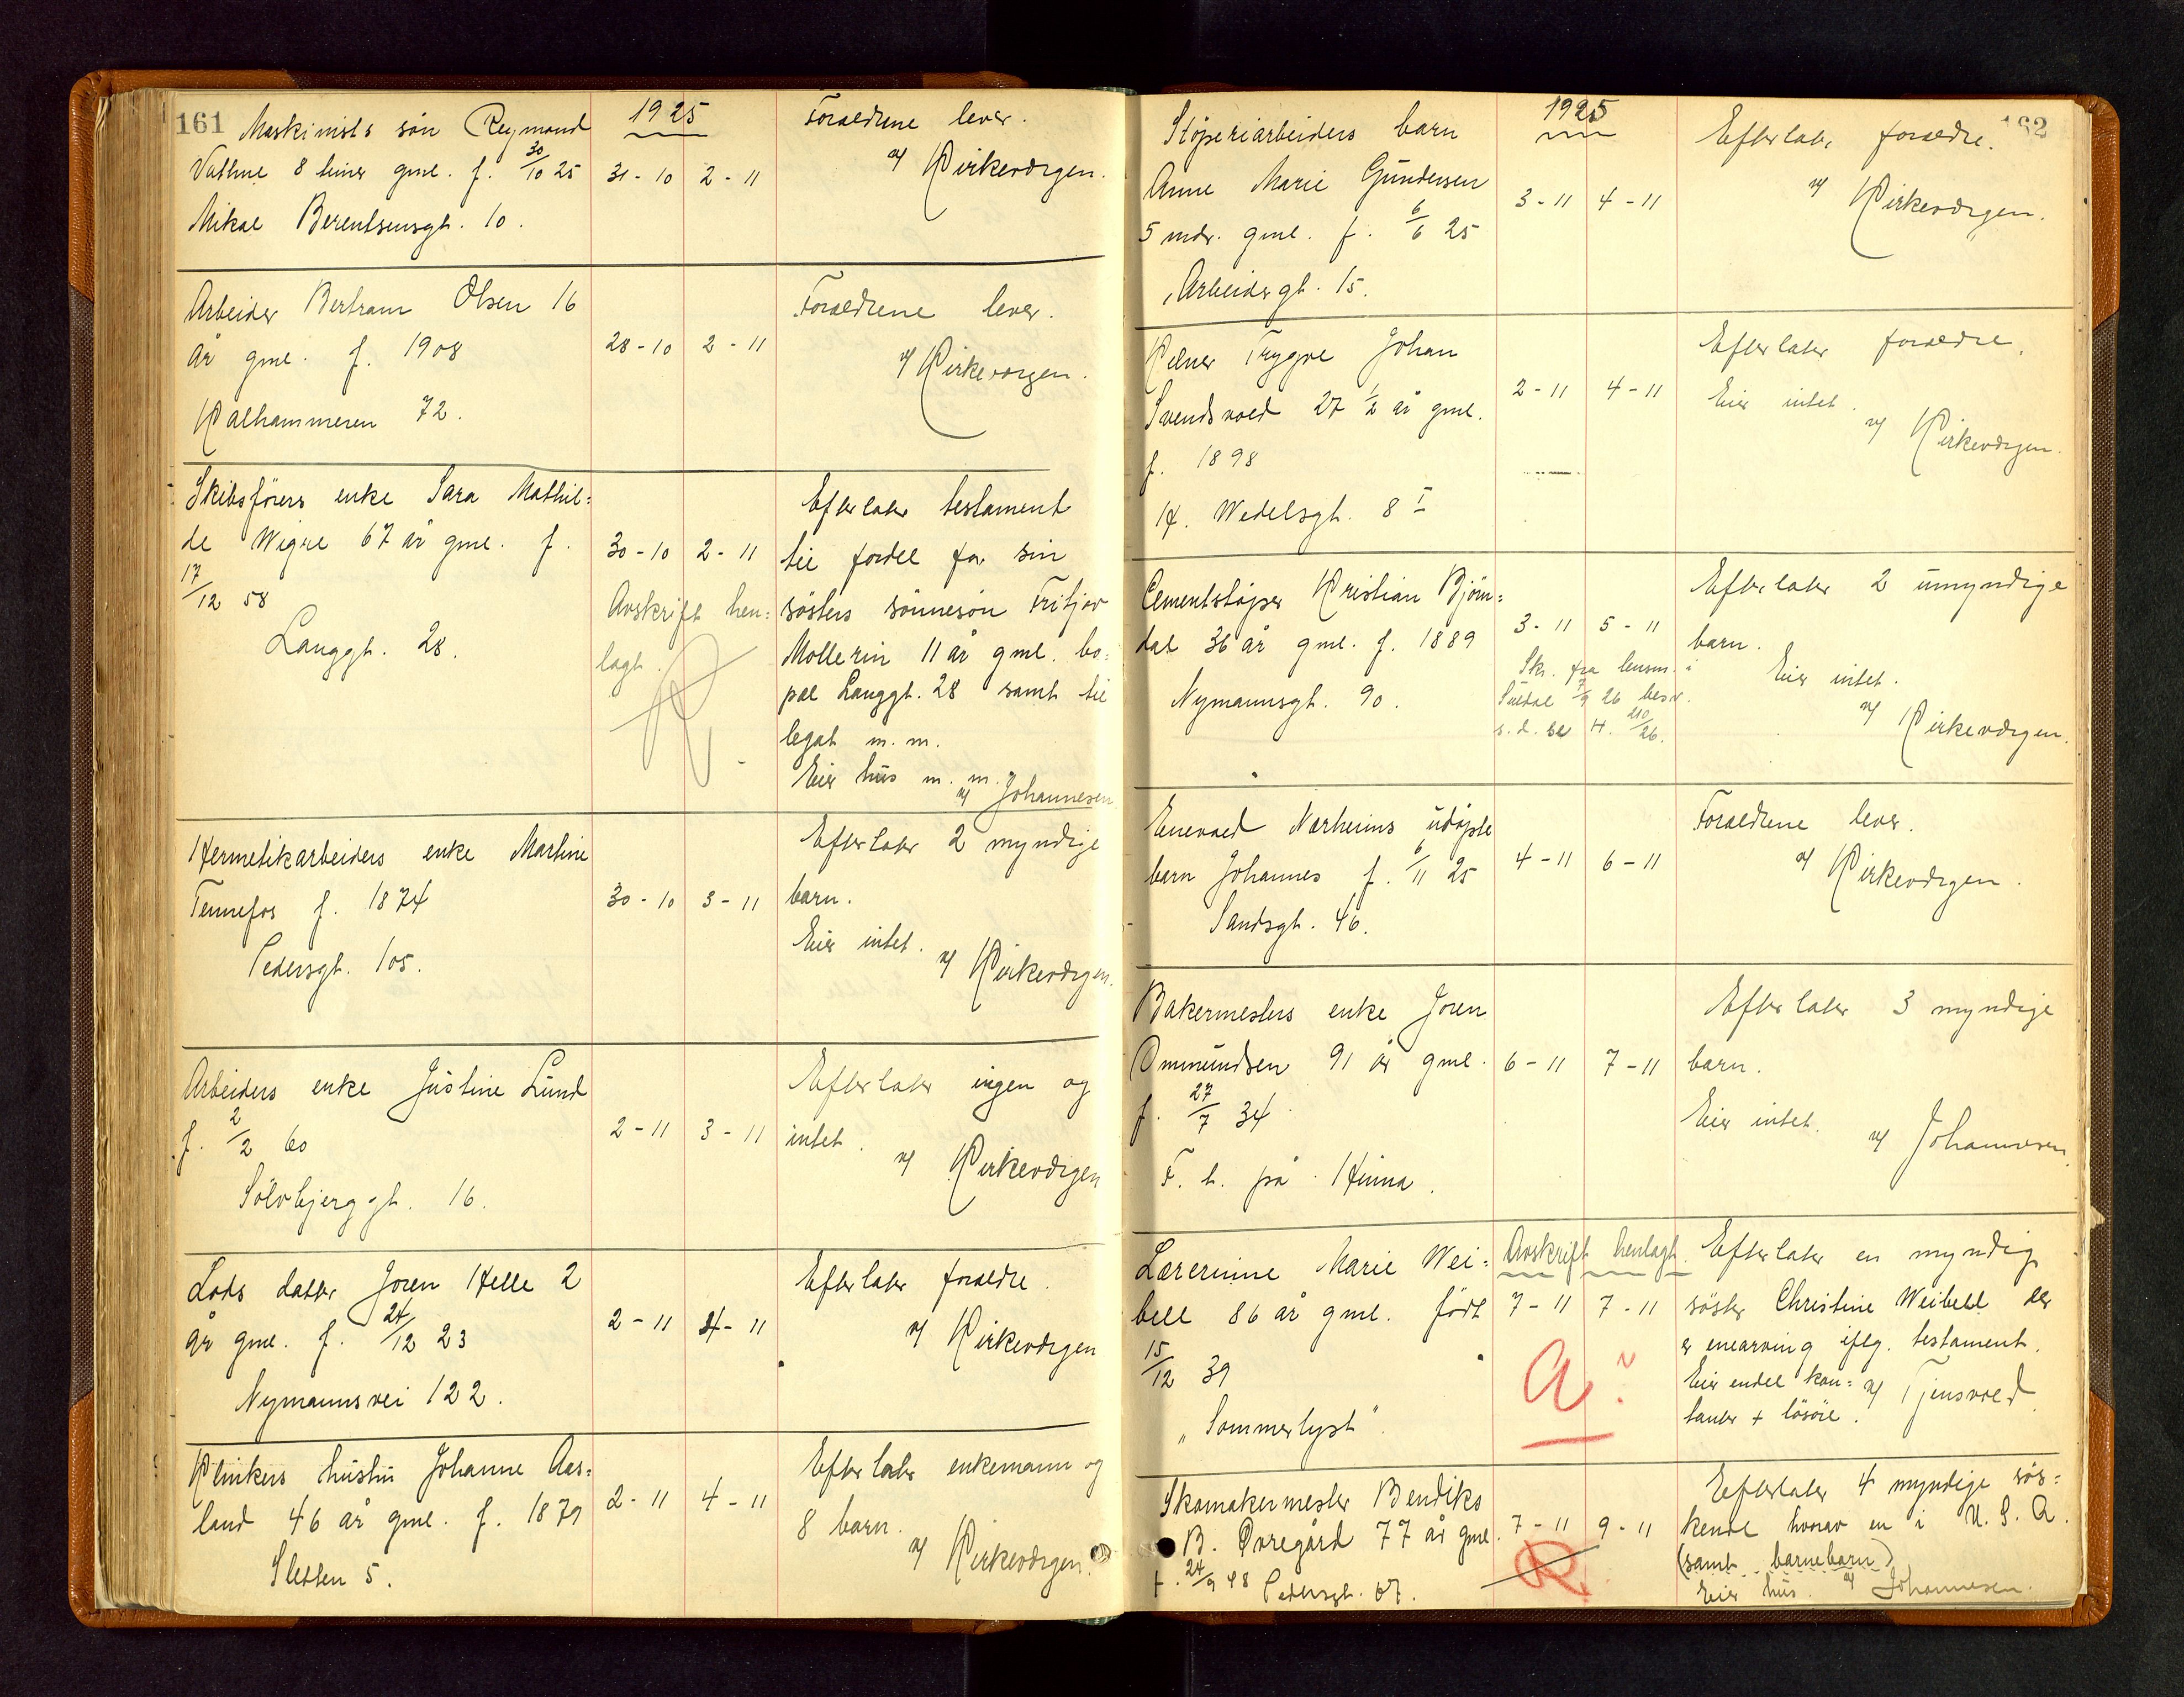 161
1925
Maskinists sön Reymond
Vathne 8 timer gml. f. 30/10 25
Mikal Berentsensgt. 10.
31 - 10 2 - 11
Foraeldrene lever.
v/ Kirkevergen.
Arbeider Bertram Olsen 16
år gml. f. 1908
Kalhammeren 72.
28 - 10 2 - 11
Foraeldrene lever.
v/ Kirkevergen.
Skibsförers enke Sara Mathil=
de Wigre 67 år gml. f.
17/12 58
Langgt. 28.
30 - 10 2 - 11
Avskrift hen=
lagt.
R
Efterlater testament
til fordel for sin
sösters sönnesön Fritjov
Mollerin 11 år gml. bo=
pæl Langgt. 28 samt til
legat m. m.
Eier hus m. m.
v/ Johannesen
Hermetikarbeiders enke Martine
Tennefos f. 1874
Pedersgt. 105.
30 - 10 3 - 11
Efterlater 2 myndige
barn.
Eier intet.
v/ Kirkevergen.
Arbeiders enke Justine Lund
f. 2/2 60
Sölvbjerggt. 16.
2 - 11 3 - 11
Efterlater ingen og
intet.
v/ Kirkevergen
Lods datter Joren Helle 2
år gml. f. 24/12 23
Nymannsvei 122.
2 - 11 4 - 11
Efterlater foraeldre.
v/ Kirkevergen
Klinkers hustru Johanne Aas=
land 46 år gml. f. 1879
Sletten 5.
2 - 11 4 - 11
Efterlater enkemann og
8 barn.
v/ Kirkevergen.
162
1925
Stöperiarbeiders barn
Anne Marie Gundersen
5 mdr. gml. f. 6/6 25
Arbeidergt. 15.
3 - 11 4 - 11
Efterlater foraeldre.
v/ Kirkevergen.
Kelner Trygve Johan
Svendsvoed 27 1/2 år gml.
f. 1898
H. Wedelsgt. 8 I
2 - 11 4 - 11
Efterlater foraeldre.
Eier intet.
v/ Kirkevergen.
Cementstöper Kristian Björn=
dal 36 år gml. f. 1889
Nymannsgt. 90.
3 - 11 5 - 11
Skr. fra lensm. i
Suldal 7/9 26 besv.
s. d. se H. 210/26.
Efterlater 2 umyndige
barn.
Eier intet.
v/ Kirkevergen.
Enevoed Narheims udöpte
barn Johannes f. 6/11 25
Sandsgt. 46.
4 - 11 6 - 11
Foraeldrene lever.
v/ Kirkevergen.
Bakermesters enke Joren
Ommundsen 91 år gml.
f. 27/7 34.
F. h. på Hinna.
6 - 11 7 - 11
Efterlater 3 myndige
barn.
Eier intet.
v/ Johannesen.
Lærerinne Marie Wei=
bell 86 år gml. födt
15/12 39
„Sommerlyst“.
Avskrift henlagt.
7 - 11 7 - 11
a ?
Efterlater en myndig
söster Christine Weibell der
er enearving iflg. testament.
Eier endel kon=
tanter + lösöre.
v/ Tjensvold
Skomakermester Bendiks
B. Övregård 77 år gml.
f. 24/9 48 Pedersgt. 67.
7 - 11 9 - 11
R
Efterlater 4 myndige sös=
kende hvorav en i U. S. A.
(samt barnebarn)
Eier hus. v/ Johannesen.